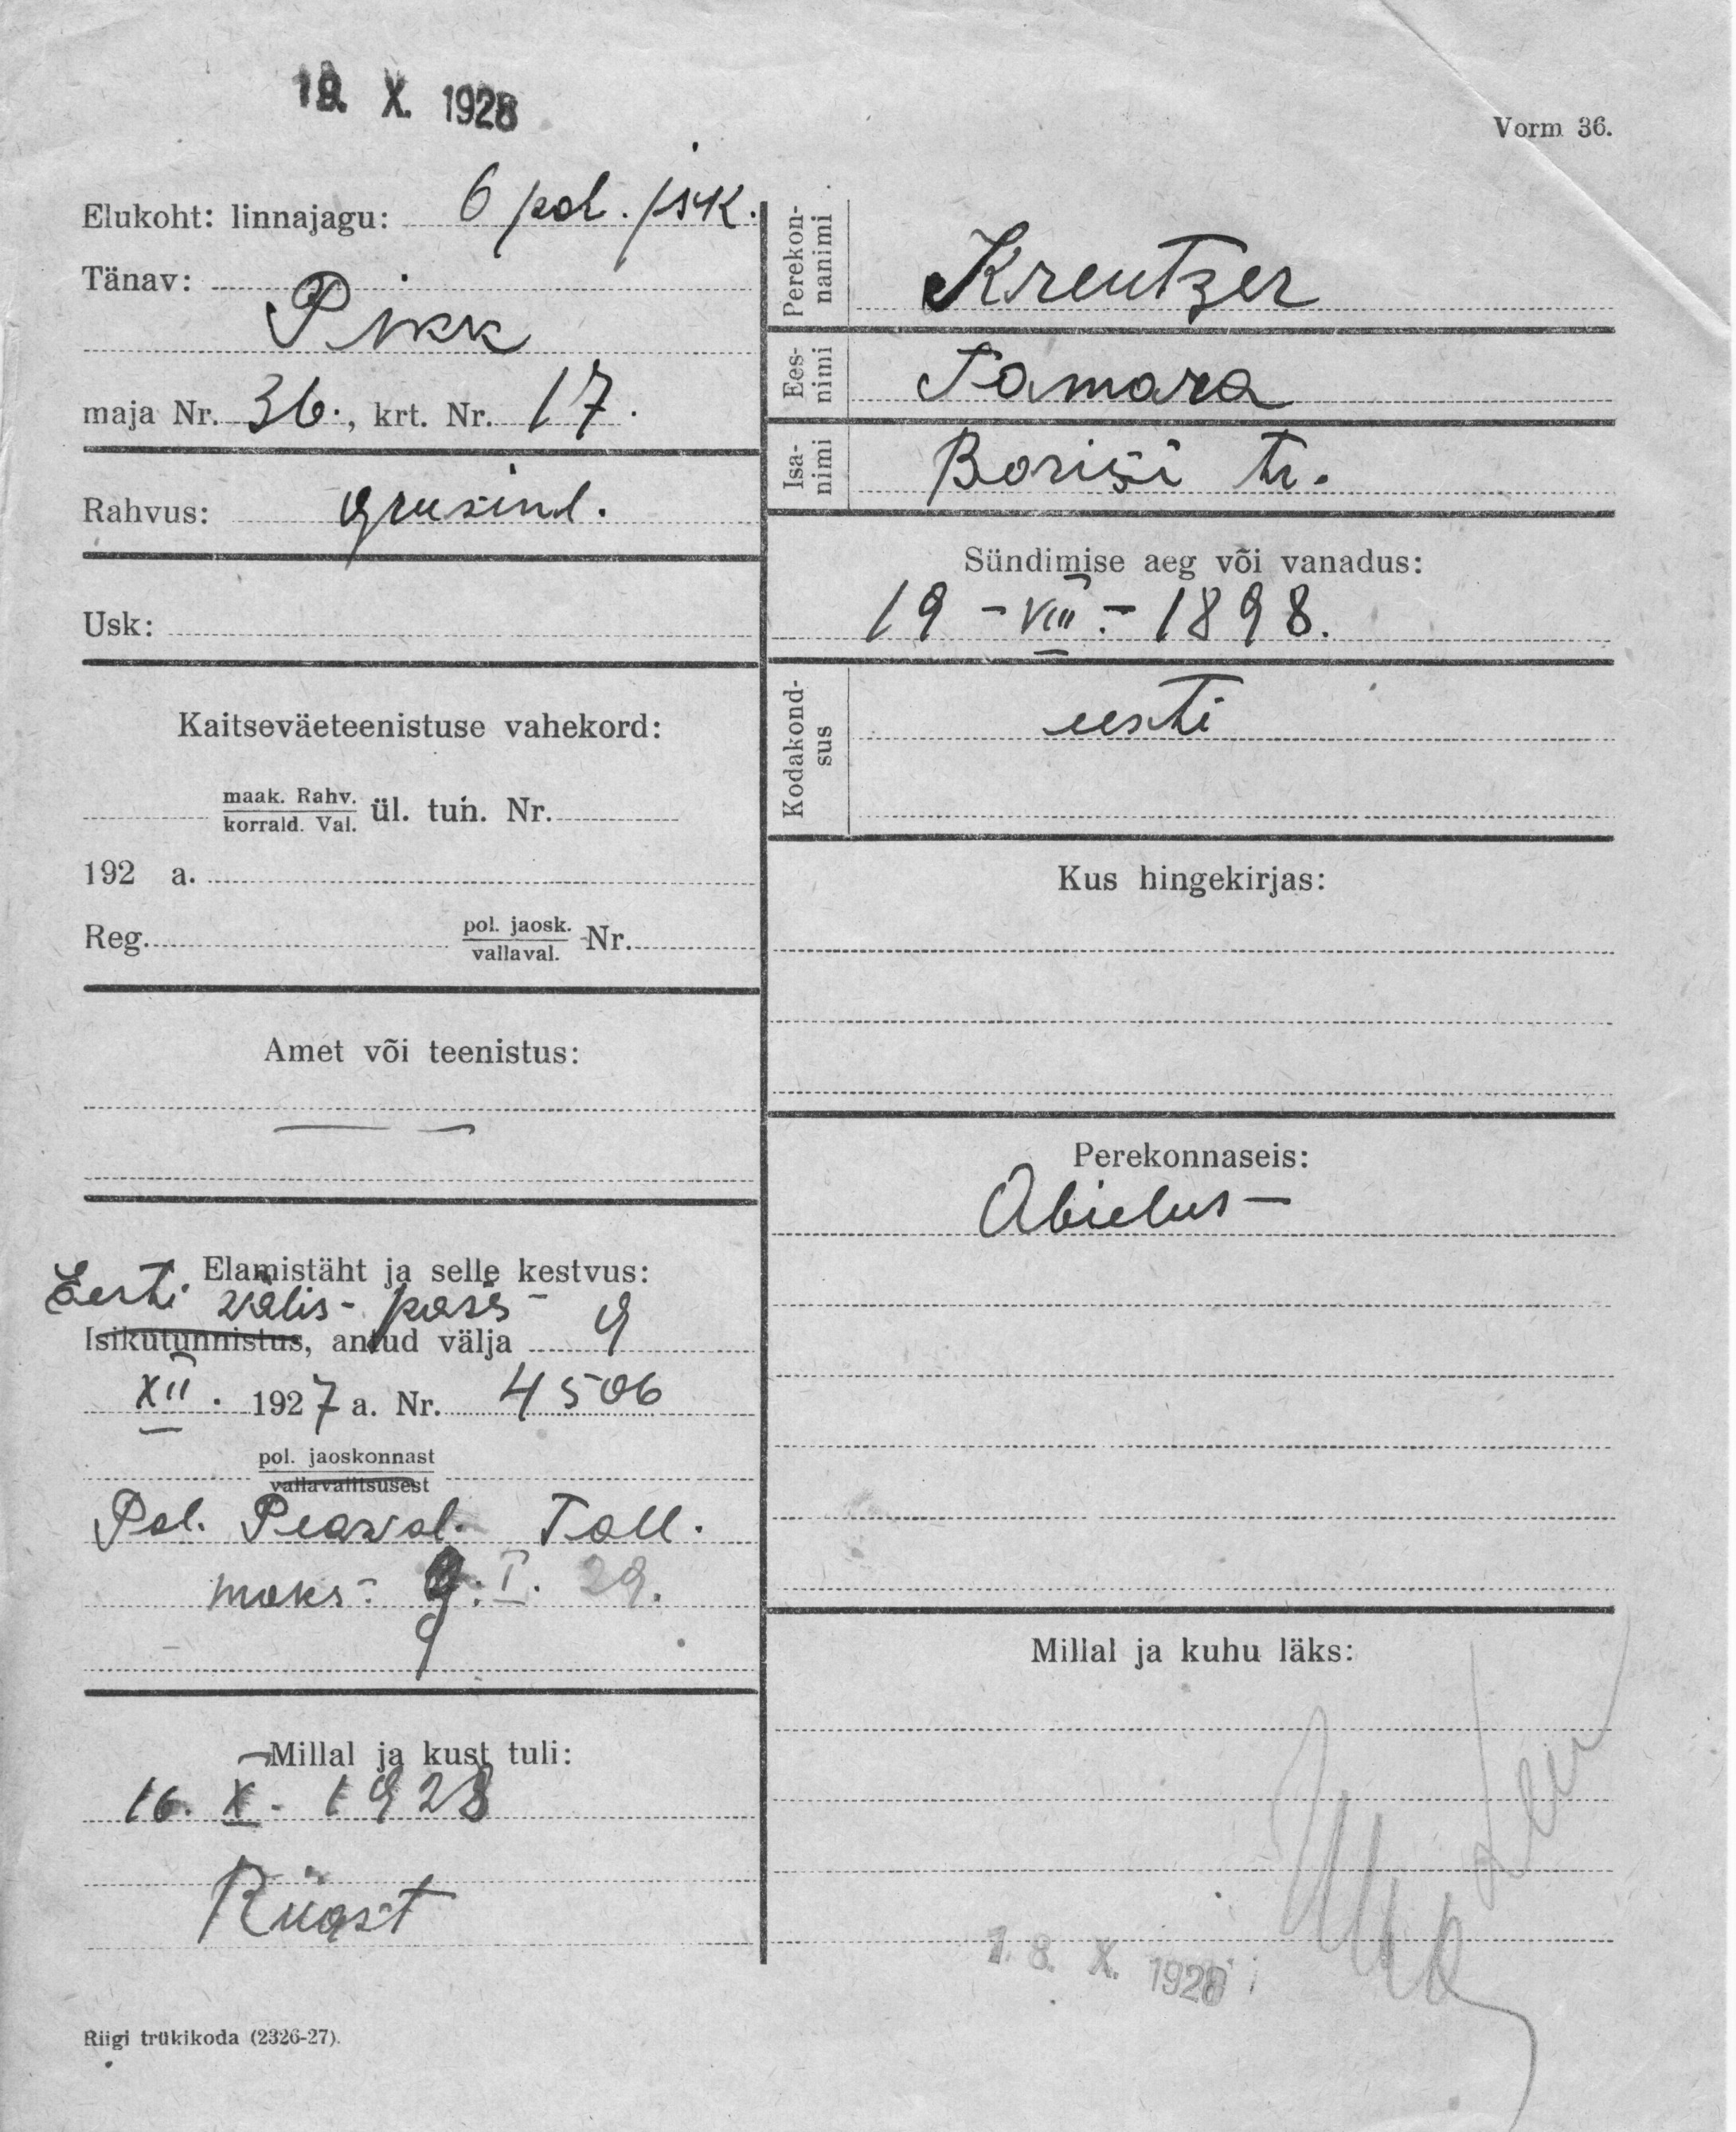 19. X. 1928
Vorm 36.
Elukoht: linnajagu: 6 pol. jsk.
Tänav:
Pikk
maja Nr. 36., krt. Nr. 17.
Rahvus: grusinl.
Usk:
Kaitseväeteenistuse vahekord:
maak. Rahv.
korrald. Val. ül. tun. Nr.
192 a.
Reg. pol. jaosk. Nr.
vallaval.
Amet või teenistus:
Elamistäht ja selle kestvus:
Eesti välis-pass - 9
Isikutunnistus, antud välja
XII. 1927 a. Nr. 4506
pol. jaoskonnast
vallavalitsusest
Pol. Peaval. Tall.
maks. 9. I. 29.
Millal ja kust tuli:
16. X. 1928
Riiast
Riigi trükikoda (2326-27).
Perekonnanimi Kreutzer
Eesnimi Tamara
Isanimi Borisi tr.
Sündimise aeg või vanadus:
19 - VIII. - 1898.
Kodakondsus eesti
Kus hingekirjas:
Perekonnaseis:
Abielus -
Millal ja kuhu läks:
18. X. 1928